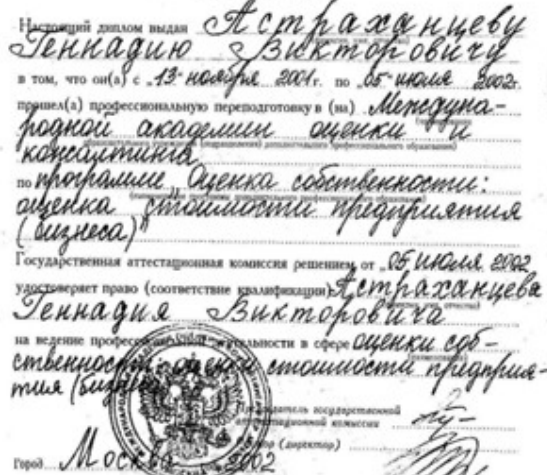 Настоящий диплом выдан Астраханцеву
Геннадию Викторовичу
в том, что он(а) с „13“ ноября 2001г. по „05“ июля 2002
прошел(а) профессиональную переподготовку в (на) Междуна-
родной академии оценки и
консалтинга
по программе „Оценка собственности:
оценка стоимости предприятия
(бизнеса)“
Государственная аттестационная комиссия решением от „05“ июля 2002
удостоверяет право (соответствие квалификации) Астраханцева
Геннадия Викторовича
на ведение профессиональной деятельности в сфере оценки соб-
ственности: оценки стоимости предприя-
тия (бизнеса)
Председатель государственной
аттестационной комиссии
Ректор (директор)
Город Москва 2002